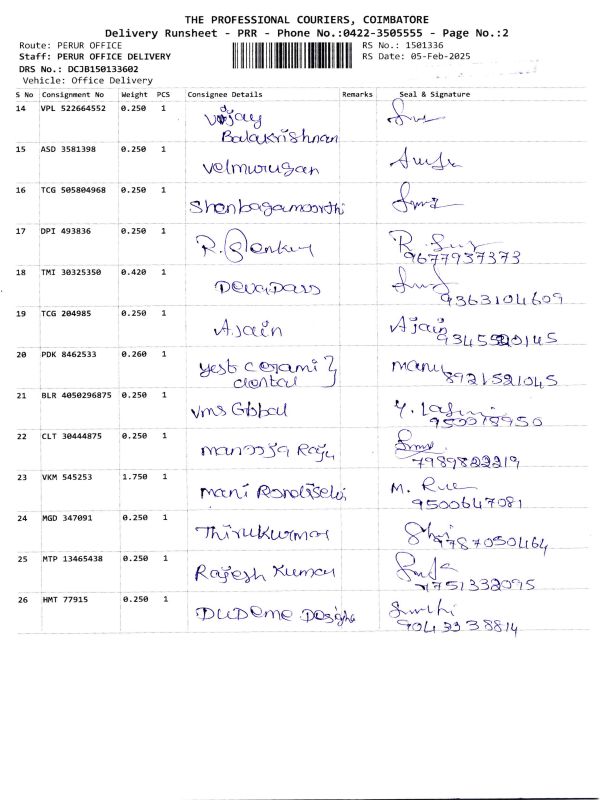 THE PROFESSIONAL COURIERS, COIMBATORE
Delivery Runsheet - PRR - Phone No.:0422-3505555 - Page No.:2
Route: PERUR OFFICE RS No.: 1501336
Staff: PERUR OFFICE DELIVERY RS Date: 05-Feb-2025
DRS No.: DCJB150133602
Vehicle: Office Delivery
S No Consignment No Weight PCS Consignee Details Remarks Seal & Signature
14 VPL 522664552 0.250 1 Vijay
Balakrishnan
15 ASD 3581398 0.250 1 Velmurugan
16 TCG 505804968 0.250 1 Shenbagamoorthi
17 DPI 493836 0.250 1 R.
9677937373
18 TMI 30325350 0.420 1 Devadass
9363104609
19 TCG 204985 0.250 1 A.Jain A Jain
20 PDK 8462533 0.260 1 yest cerami manu
dental 8921521045
21 BLR 4050296875 0.250 1 Vms Global
22 CLT 30444875 0.250 1 Manooja Raju
7989822219
23 VKM 545253 1.750 1 Mani M.
9500647081
24 MGD 347091 0.250 1 Thirukumar
9787050464
25 MTP 13465438 0.250 1 Rajesh Kumar
9751332095
26 HMT 77915 0.250 1 DUDeme Designs
9043338814